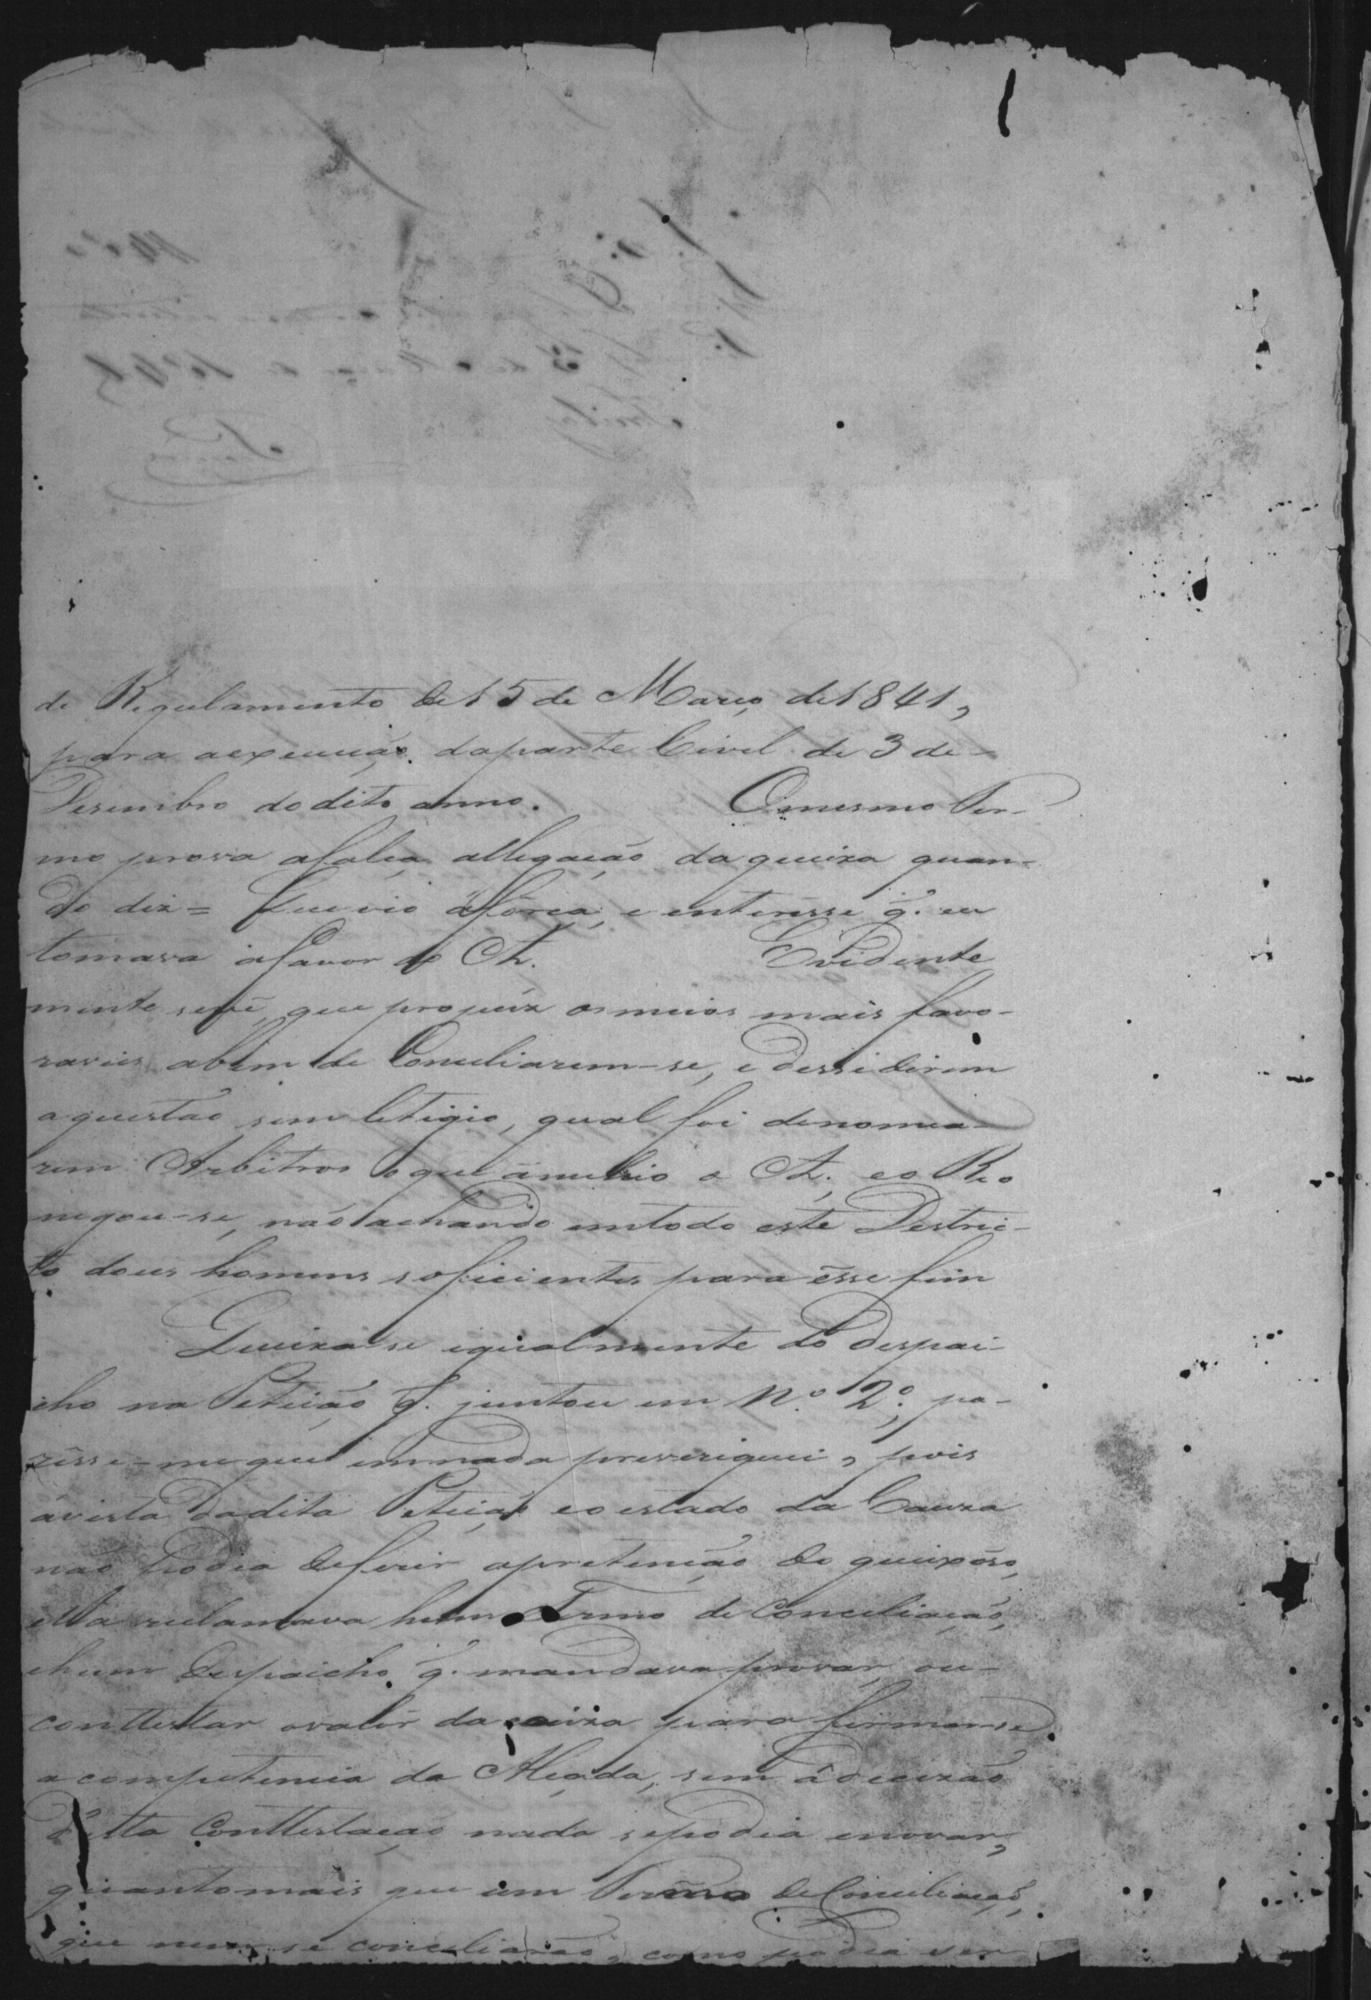 de Regulamento de 15 de Março de 1841,
para aexecução daparte Civel de 3 de-
Desembro dodito anno. Omesmo Ter-
mo prova afalça allegação da queixa quan-
do diz = que vio áforça, e enteresse q. eu
tomava afavor do A. Evidente
mente sevê, que propuz osmeios mais favo-
raveis abem de Conciliarem-se, e dessidirem
aquestão sem letigio, qual foi denomia-
rem Arbitros oque ánuhio o A., eo Reo
negou-se, não achando emtodo este Destric-
to dous homens soficientes para êsse fim
Queixa se igualmente do despai-
cho na Petição q. juntou em N.º 2º, pa-
résse-me que emnada preveriquei, pois
ávista dadita Petição eo estado da Cauza
não podia deferir apretenção do queixôso,
ella reclamava hum Termo de Conciliação,
ehum despaicho q. mandava provar, ou-
conttestar ovalôr da cauza para firmarse
acompetencia da Alçada, sem âdecizão
d'esta Conttestação nada sepodia enovar,
quantomais que um Termo de Conciliação,
que nem se conciliarão, como podia ser